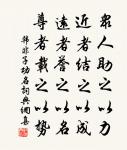 眾人助之以力
近者結之以成
遠者譽之以名
尊者載之以勢
韓非子功名詞典網喜